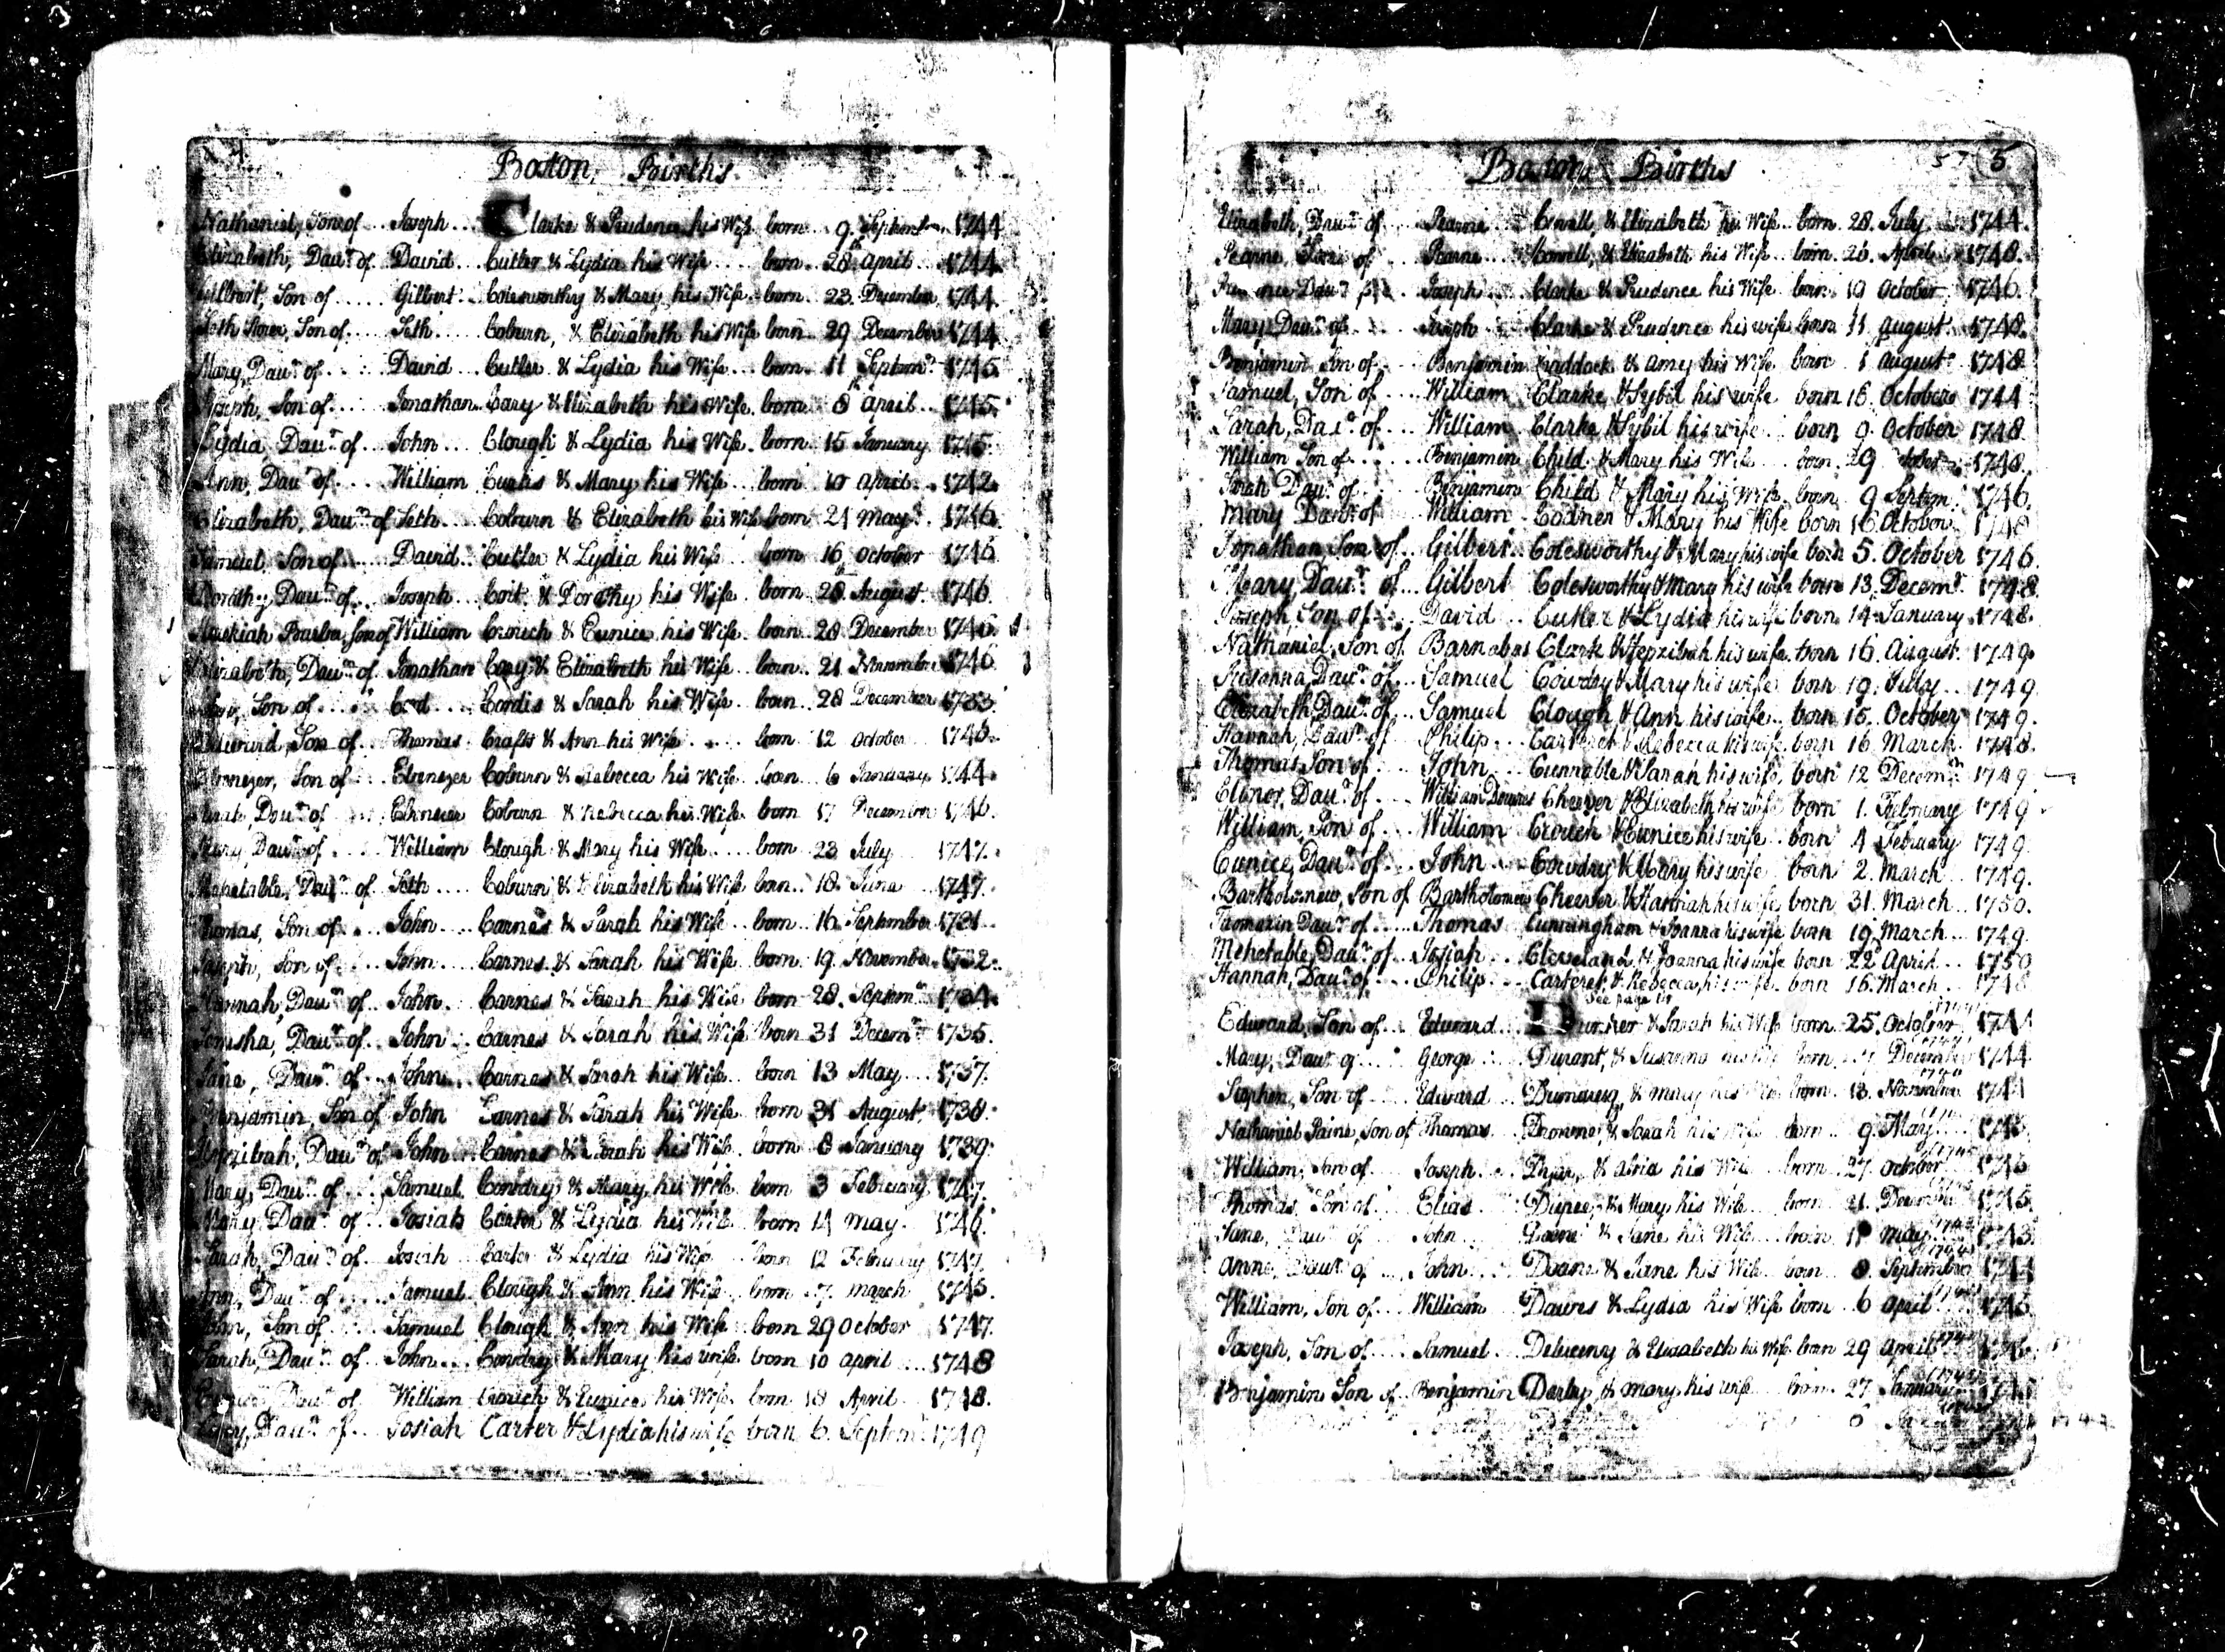 4
Boston, Births
Nathaniel, Son of Joseph Clarke & Prudence his Wife born 9 September 1744
Elizabeth, Daur. of David Cutler & Lydia his Wife born 28 April 1744
Gilbert, Son of Gilbert Colesworthy & Mary his Wife born 23 December 1744
Seth Storer, Son of Seth Coburn, & Elizabeth his Wife born 29 December 1744
Mary, Daur. of David Cutler & Lydia his Wife born 11 Septemr. 1745
Joseph, Son of Jonathan Cary & Elizabeth his Wife born 8 April 1745
Lydia, Daur. of John Clough & Lydia his Wife born 15 January 1745
Ann, Daur of William Curtis & Mary his Wife born 10 April 1742
Elizabeth, Daur. of Seth Coburn & Elizabeth his Wife born 21 May 1746
Samuel, Son of David Cutler & Lydia his Wife born 16 October 1746
Dorothy Daur. of Joseph Coit & Dorothy his Wife born 28 August 1746
Barber, Son of William Crouch & Eunice his Wife born 28 December 1746
Elizabeth, Daur. of Jonathan Cary & Elizabeth his Wife born 21 November 1746
Son of Cord Cordis & Sarah his Wife born 28 December 1733
Edward, Son of Thomas Crafts & Ann his Wife born 12 October 1746
Ebenezer, Son of Ebenezer Coburn & Rebecca his Wife born 6 January 1744
Daur. of Ebenezer Coburn & Rebecca his Wife born 17 December 1746
Mary, Daur. of William Clough & Mary his Wife born 23 July 1747
Mehetable, Daur. of Seth Coburn & Elizabeth his Wife born 18 June 1747
Thomas, Son of John Carnes & Sarah his Wife born 16 September 1731
Joseph, Son of John Carnes & Sarah his Wife born 19 November 1732
Hannah, Daur. of John Carnes & Sarah his Wife born 28 Septemr. 1734
Daur. of John Carnes & Sarah his Wife born 31 Decemr. 1735
Jane, Daur. of John Carnes & Sarah his Wife born 13 May 1737
Benjamin, Son of John Carnes & Sarah his Wife born 31 August 1738
Hepzibah, Daur. of John Carnes & Sarah his Wife born 8 January 1739
Mary, Daur. of Samuel Cowdry & Mary his Wife born 3 February 1747
Mary Daur. of Josiah Carter & Lydia his Wife born 14 May 1746
Sarah, Daur. of Josiah Carter & Lydia his Wife born 12 February 1747
Ann, Daur. of Samuel Clough & Ann his Wife born 7 March 1745
John, Son of Samuel Clough & Ann his Wife born 29 October 1747
Sarah, Daur. of John Cowdry & Mary his wife born 10 April 1748
Daur. of William Crouch & Eunice his Wife born 18 April 1748
Daur. of Josiah Carter & Lydia his wife born 6 Septemr. 1749
Boston Births
57 5
Elizabeth, Daur. of Pearne Cowell, & Elizabeth his Wife born 28 July 1744
Pearne, Son of Pearne Cowell, & Elizabeth his Wife born 26 April 1748
Daur. of Joseph Clarke & Prudence his Wife born 19 October 1746
Mary, Daur. of Joseph Clarke & Prudence his wife born 11 August 1748
Benjamin, Son of Benjamin Craddock & Amy his Wife born 1 August 1748
Samuel, Son of William Clarke & Sybil his wife born 16 October 1744
Sarah, Daur. of William Clarke & Sybil his wife born 9 October 1748
William Son of Benjamin Child & Mary his Wife born 29 October 1748
Sarah Daur. of Benjamin Child & Mary his Wife born 9 Septem. 1746
Mary Daur. of William Codner & Mary his Wife born 16 October 1748
Jonathan Son of Gilbert Colesworthy & Mary his wife born 5 October 1746
Mary, Daur. of Gilbert Colesworthy & Mary his wife born 13 Decemr. 1748
Joseph Son of David Cutler & Lydia his wife born 14 January 1748
Nathaniel, Son of Barnabas Clark & Hepzibah his wife born 16 August 1749
Susanna, Daur. of Samuel Cowdry & Mary his wife born 19 July 1749
Elizabeth, Daur. of Samuel Clough & Ann his wife born 15 October 1749
Hannah, Daur. of Philip Carteret & Rebecca his wife born 16 March 1748
Thomas Son of John Cunnable & Sarah his wife born 12 Decemr. 1749
Elenor, Daur. of William Downes Cheever & Elizabeth his wife born 1 February 1749
William, Son of William Crouch & Eunice his wife born 4 February 1749
Eunice, Daur. of John Cowdry & Mary his wife born 2 March 1749
Bartholomew, Son of Bartholomew Cheever & Hannah his wife born 31 March 1750
Tamazin Daur. of Thomas Cunningham & Joanna his wife born 19 March 1749
Mehetable, Daur. of Josiah Cleveland & Joanna his wife born 22 April 1750
Hannah, Daur. of Philip Carteret & Rebecca his wife born 16 March 1748
See page
Edward, Son of Edward Durner & Sarah his Wife born 25 October 1744
Mary, Daur. of George Durant, & Susanna his Wife born December 1744
Stephen, Son of Edward Dumaresq & Mary his Wife born 13 November 1744
Nathaniel Paine, Son of Thomas Drowne, & Sarah his Wife born 9 May 1745
William, Son of Joseph & Abria his Wife born 27 October 1745
Thomas, Son of Elias Dupee, & Mary his Wife born 21 1745
Jane, Daur of John Doane & Jane his Wife born 11 May 1743
Anne, Daur of John Doane & Jane his Wife born 8 September 1744
William, Son of William Dawes & Lydia his Wife born 6 April 1745
Joseph, Son of Samuel & Elizabeth his Wife born 29 April
Benjamin Son of Benjamin Darby, & Mary his wife born 27 January